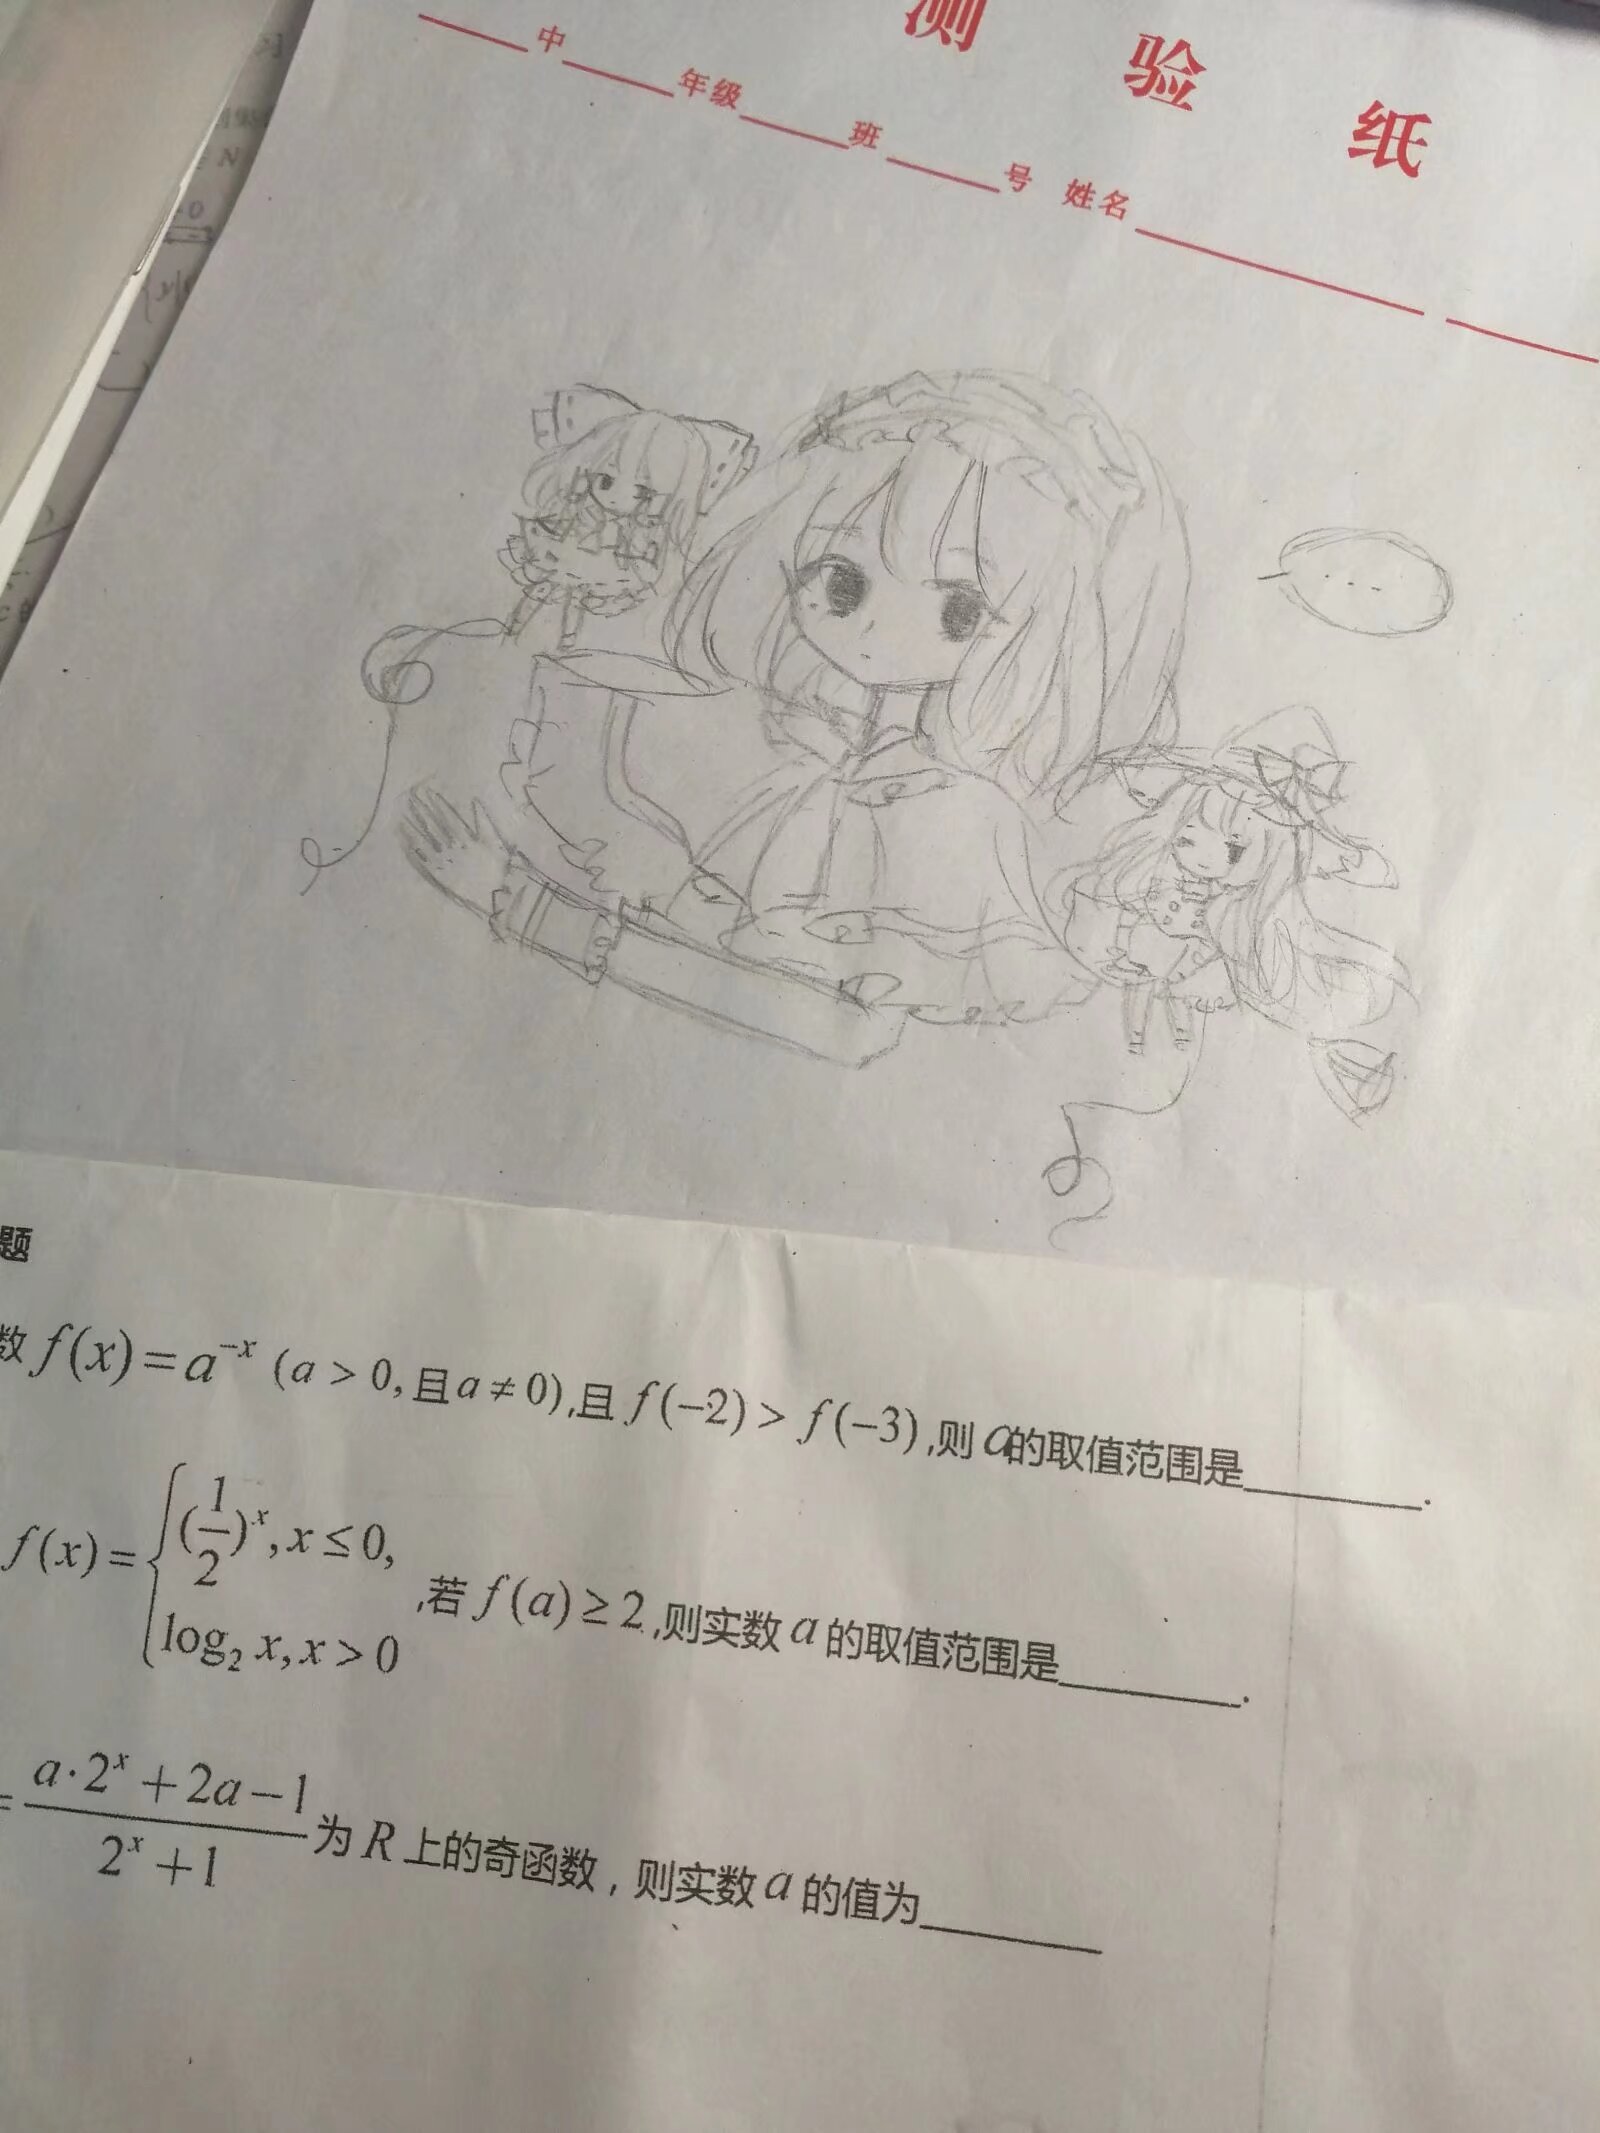 测 验 纸
____中____年级____班____号 姓名________ ____
题
数 f(x)=a^{-x} (a>0,且a≠0),且 f(-2)>f(-3),则a的取值范围是________.
f(x)={(1/2)^x, x≤0, log₂x, x>0 ,若 f(a)≥2,则实数a的取值范围是________.
= (a·2^x+2a-1)/(2^x+1) 为R上的奇函数，则实数a的值为________